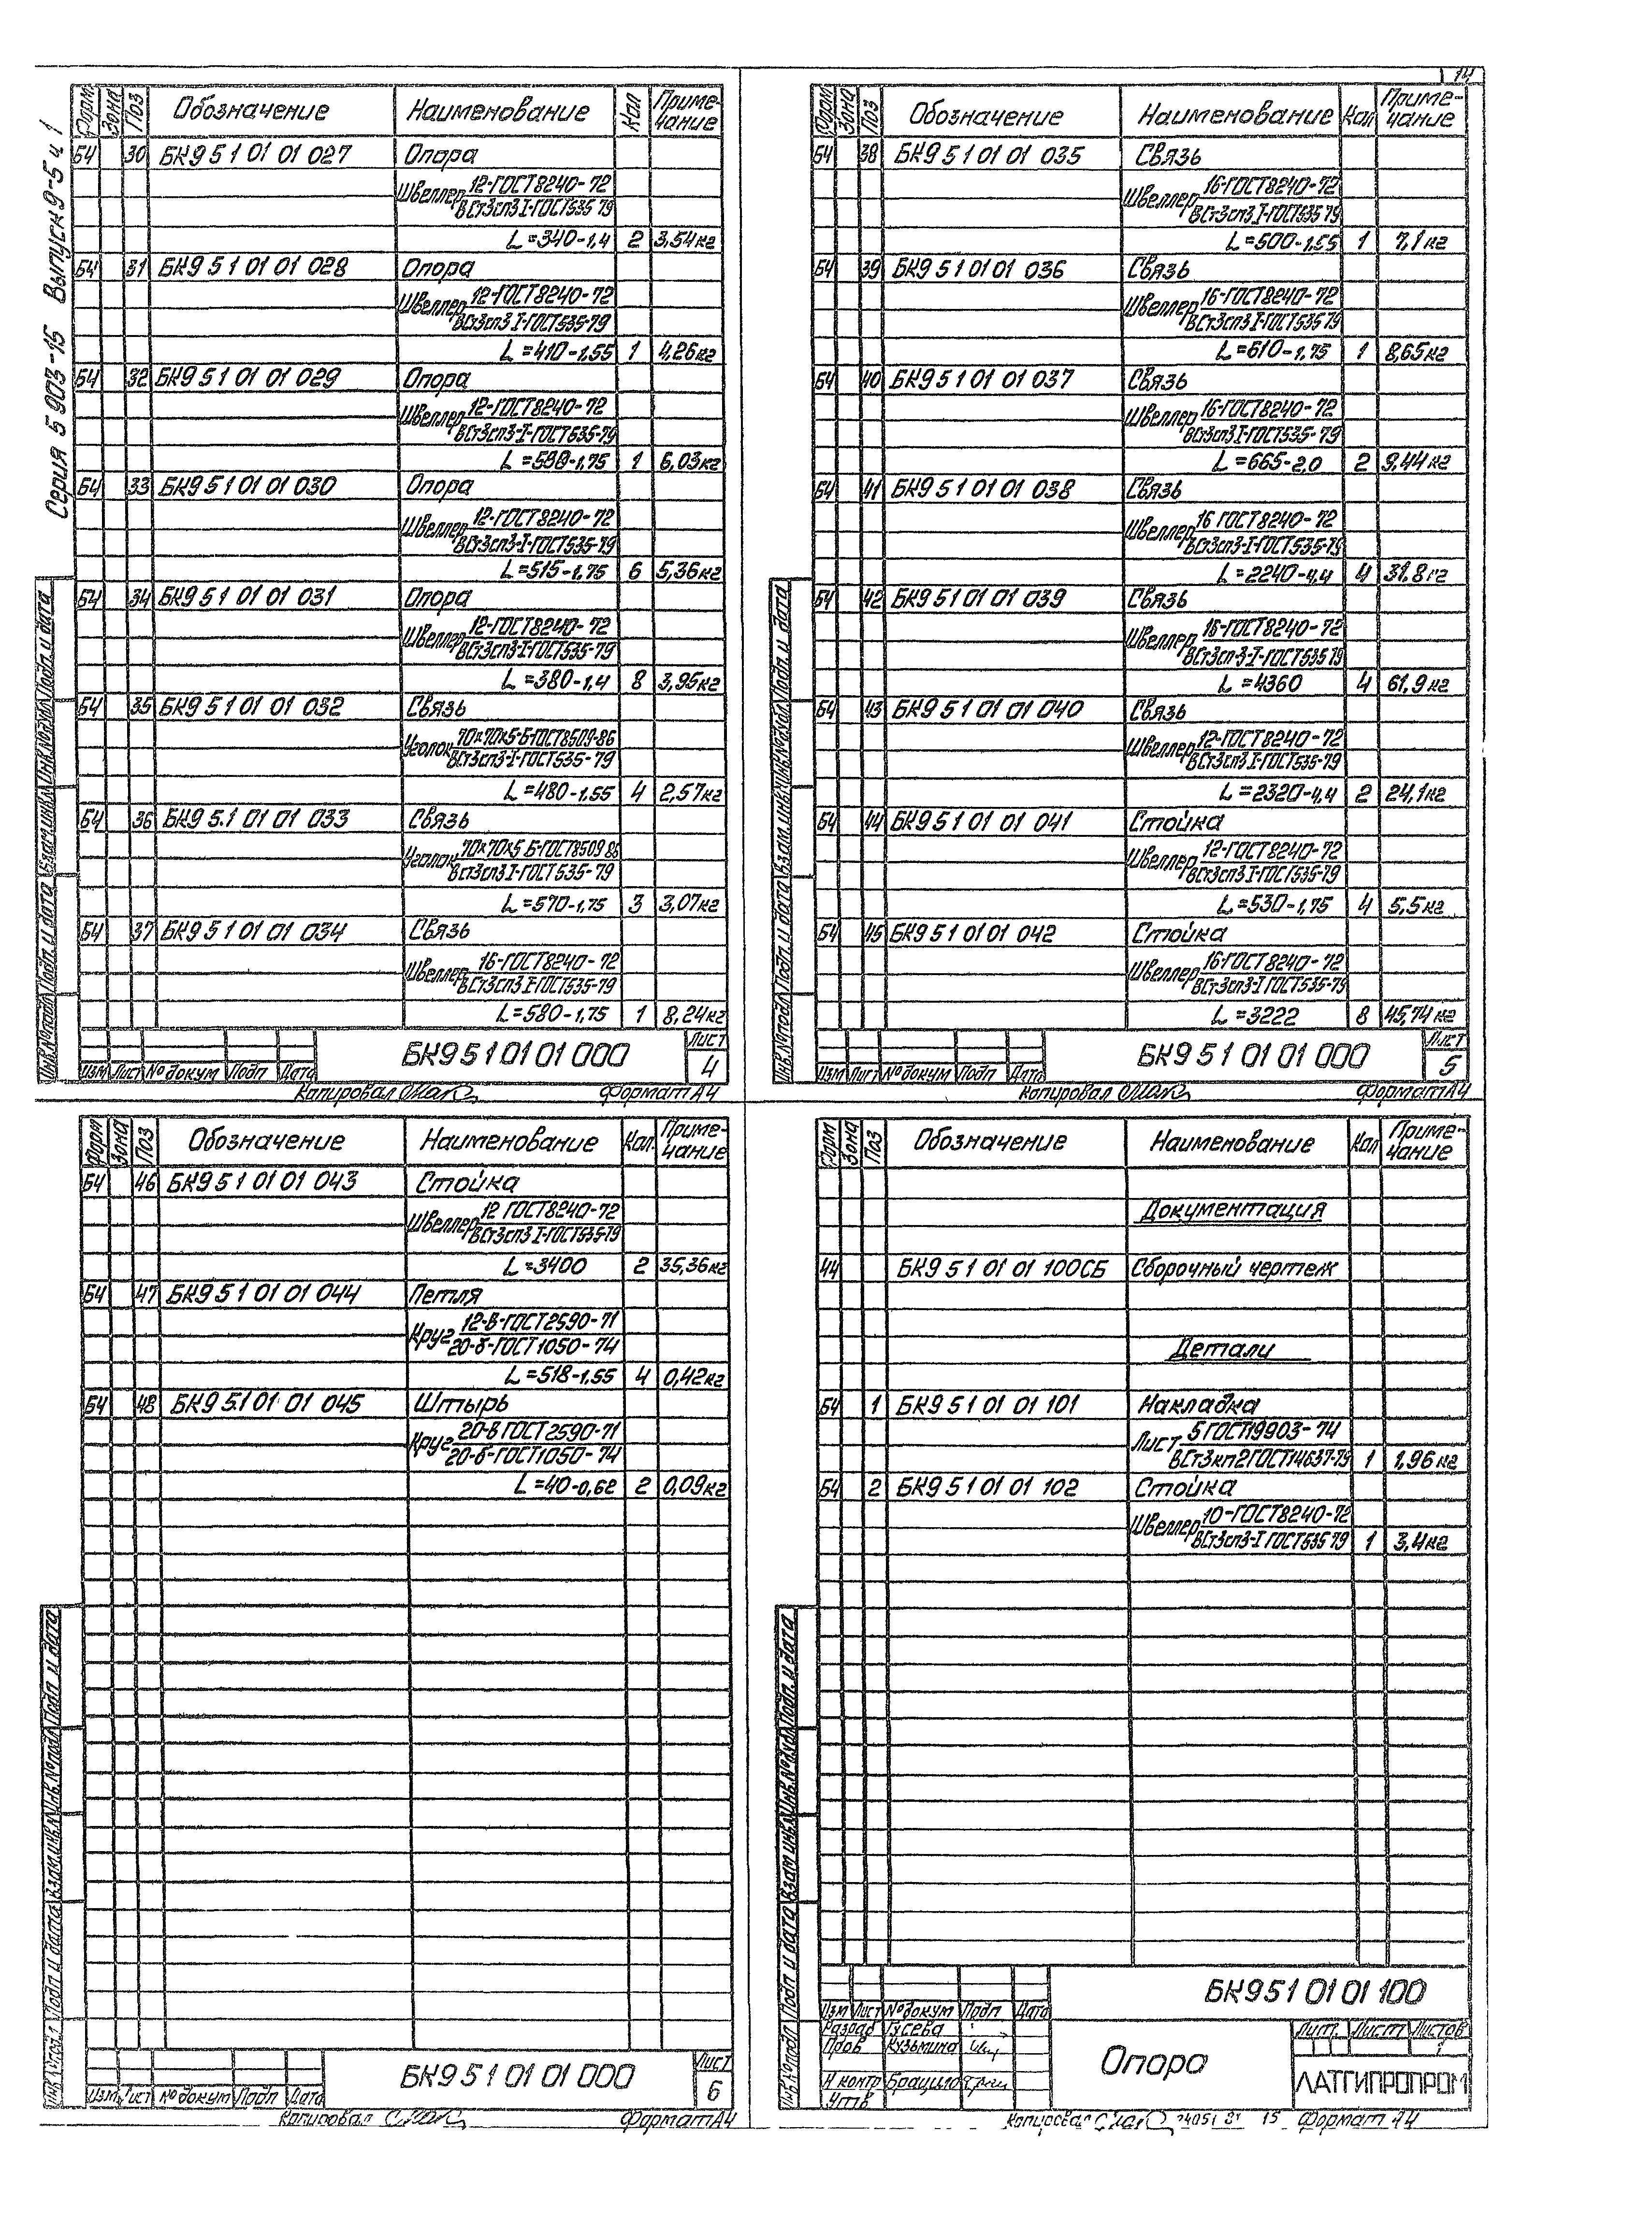 14
Серия 5 903-15 Выпуск 9-5 ч 1
Форм Зона Поз Обозначение Наименование Кол Примечание
БЧ 30 БК9 5 1 01 01 027 Опора
Швеллер 12-ГОСТ8240-72
ВСт3сп3 I-ГОСТ535 79
L=340-1,4 2 3,54кг
БЧ 31 БК9 5 1 01 01 028 Опора
Швеллер 12-ГОСТ8240-72
ВСт3сп3 I-ГОСТ535-79
L=410-1,55 1 4,26кг
БЧ 32 БК9 5 1 01 01 029 Опора
Швеллер 12-ГОСТ8240-72
ВСт3сп3-I-ГОСТ535-79
L=580-1,75 1 6,03кг
БЧ 33 БК9 5 1 01 01 030 Опора
Швеллер 12-ГОСТ8240-72
ВСт3сп3-I-ГОСТ535-79
L=515-1,75 6 5,36кг
БЧ 34 БК9 5 1 01 01 031 Опора
Швеллер 12-ГОСТ8240-72
ВСт3сп3-I-ГОСТ535-79
L=380-1,4 8 3,95кг
БЧ 35 БК9 5 1 01 01 032 Связь
Уголок 70х70х5-Б-ГОСТ8509-86
ВСт3сп3-I-ГОСТ535-79
L=480-1,55 4 2,57кг
БЧ 36 БК9 5.1 01 01 033 Связь
Уголок 70х70х5 Б-ГОСТ8509 86
ВСт3сп3 I-ГОСТ535-79
L=570-1,75 3 3,07кг
БЧ 37 БК9 5 1 01 01 034 Связь
Швеллер 16-ГОСТ8240-72
ВСт3сп3 I-ГОСТ535-79
L=580-1,75 1 8,24кг
Изм Лист № докум Подп Дата
БК9 5 1 01 01 000
Лист 4
Инв.№подл Подп. и дата Взам.инв.№ Инв.№дубл Подп. и дата
Копировал Формат А4
Форм Зона Поз Обозначение Наименование Кол Примечание
БЧ 38 БК9 5 1 01 01 035 Связь
Швеллер 16-ГОСТ8240-72
ВСт3сп3 I-ГОСТ535 79
L=500-1,55 1 7,1кг
БЧ 39 БК9 5 1 01 01 036 Связь
Швеллер 16-ГОСТ8240-72
ВСт3сп3 I-ГОСТ535 79
L=610-1,75 1 8,65кг
БЧ 40 БК9 5 1 01 01 037 Связь
Швеллер 16-ГОСТ8240-72
ВСт3сп3-I-ГОСТ535-79
L=665-2,0 2 9,44кг
БЧ 41 БК9 5 1 01 01 038 Связь
Швеллер 16 ГОСТ8240-72
ВСт3сп3-I-ГОСТ535-79
L=2240-4,4 4 31,8кг
БЧ 42 БК9 5 1 01 01 039 Связь
Швеллер 16-ГОСТ8240-72
ВСт3сп-3-I-ГОСТ535 79
L=4360 4 61,9кг
БЧ 43 БК9 5 1 01 01 040 Связь
Швеллер 12-ГОСТ8240-72
ВСт3сп3 I-ГОСТ535-79
L=2320-4,4 2 24,1кг
БЧ 44 БК9 5 1 01 01 041 Стойка
Швеллер 12-ГОСТ8240-72
ВСт3сп3 I-ГОСТ535-79
L=530-1,75 4 5,5кг
БЧ 45 БК9 5 1 01 01 042 Стойка
Швеллер 16-ГОСТ8240-72
ВСт3сп3-I ГОСТ535-79
L=3222 8 45,74кг
Изм Лист № докум Подп Дата
БК9 5 1 01 01 000
Лист 5
Инв.№подл Подп. и дата Взам. инв.№ Инв.№дубл Подп. и дата
Копировал Формат А4
Форм Зона Поз Обозначение Наименование Кол. Примечание
БЧ 46 БК9 5 1 01 01 043 Стойка
Швеллер 12 ГОСТ8240-72
ВСт3сп3 I-ГОСТ535-79
L=3400 2 35,36кг
БЧ 47 БК9 5 1 01 01 044 Петля
Круг 12-В-ГОСТ2590-71
20-б-ГОСТ1050-74
L=518-1,55 4 0,42кг
БЧ 48 БК9 5.1 01 01 045 Штырь
Круг 20-В ГОСТ2590-71
20-б-ГОСТ1050-74
L=40-0,62 2 0,09кг
Изм. Лист № докум Подп Дата
БК9 5 1 01 01 000
Лист 6
Инв.№подл Подп и дата Взам.инв.№ Инв.№дубл Подп и дата
Копировал Формат А4
Форм Зона Поз Обозначение Наименование Кол Примечание
Документация
44 БК9 5 1 01 01 100СБ Сборочный чертеж
Детали
БЧ 1 БК9 5 1 01 01 101 Накладка
Лист 5 ГОСТ19903-74
ВСт3кп2ГОСТ14637-79 1 1,96кг
БЧ 2 БК9 5 1 01 01 102 Стойка
Швеллер 10-ГОСТ8240-72
ВСт3сп3-I ГОСТ535 79 1 3,4кг
БК9 5 1 01 01 100
Изм Лист № докум Подп Дата
Разраб Гусева
Пров Кузьмина
Н контр
Утв
Опора
Лит. Лист Листов
1
ЛАТГИПРОПРОМ
Инв.№подл Подп и дата Взам инв.№ Инв.№дубл Подп. и дата
Копировал 15 Формат А4